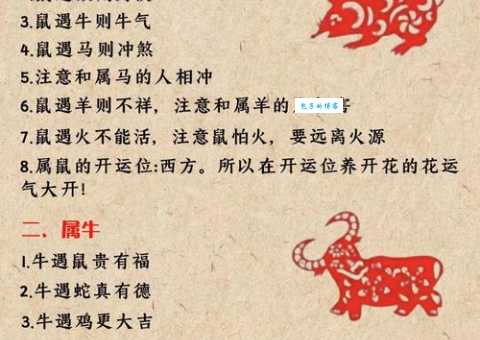 3.鼠遇牛则牛气
4.鼠遇马则冲煞
5.注意和属马的人相冲
6.鼠遇羊则不祥，注意和属羊的
7.鼠遇火不能活，注意鼠怕火，要远离火源
8.属鼠的开运位:西方。所以在开运位养开花的花运
气大开!
二、属牛
1.牛遇鼠贵有福
2.牛遇蛇真有德
3.牛遇鸡更大吉